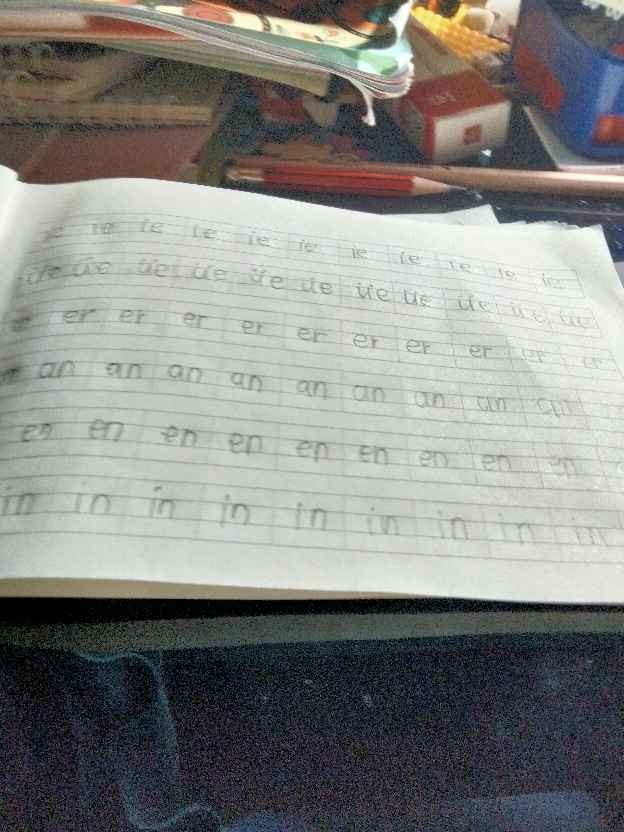 ie ie ie ie ie ie ie ie ie ie ie
üe üe üe üe üe üe üe üe üe üe üe
er er er er er er er er er
an an an an an an an an an
en en en en en en en en en
in in in in in in in in in